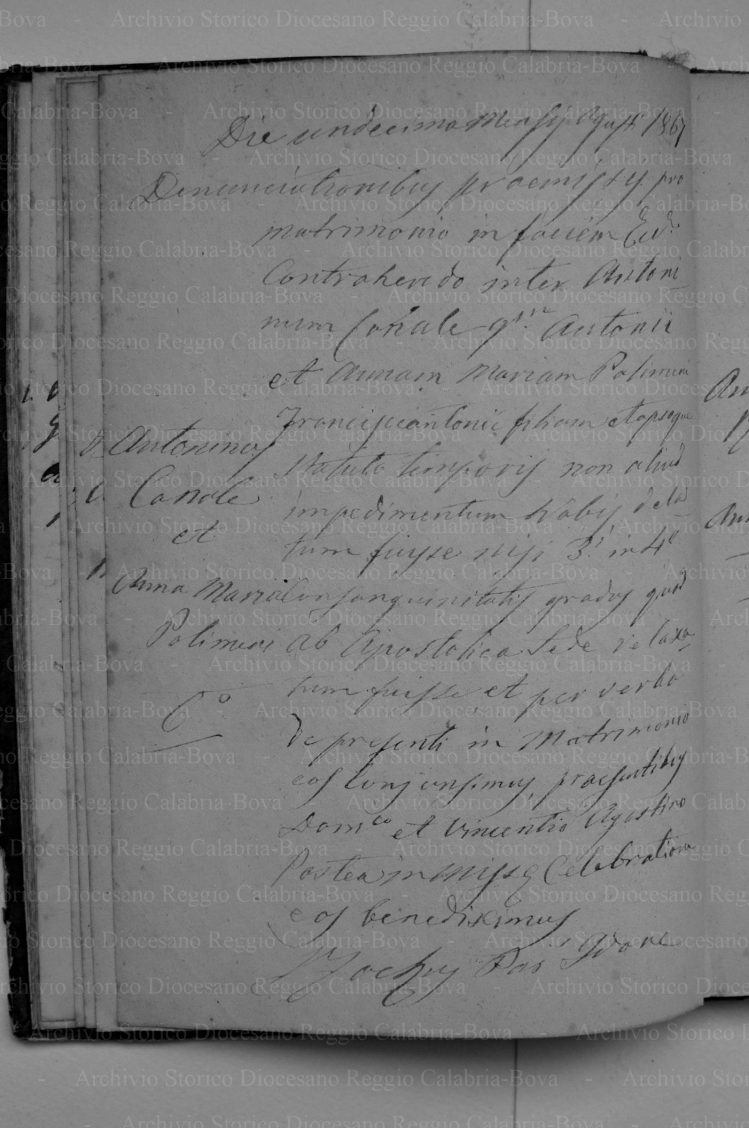 Die undecima Mensis Agusti 1867
Denunciationibus praemissis pro
matrimonio in faciem Ecc.
Contrahendo inter Antoni
num Canale q.m Antonii
et Annam Mariam Polimeni
Franciscantonii filiam
statuto temporis non aliud
impedimentum nobis dela
tum fuisse nisi 3i in 4o
Consanguinitatis gradus quod
ab Apostolica Sede relaxa
tum fuisse et per verba
de presenti in Matrimonio
eos conjunsimus, praesentibus
Dom.co et Vincentio Agostino
Postea in Missę Celebratione
eos benediximus
Par
Antoninus
Canale
et
Anna Maria
Polimeni
C.o
Archivio Storico Diocesano Reggio Calabria-Bova